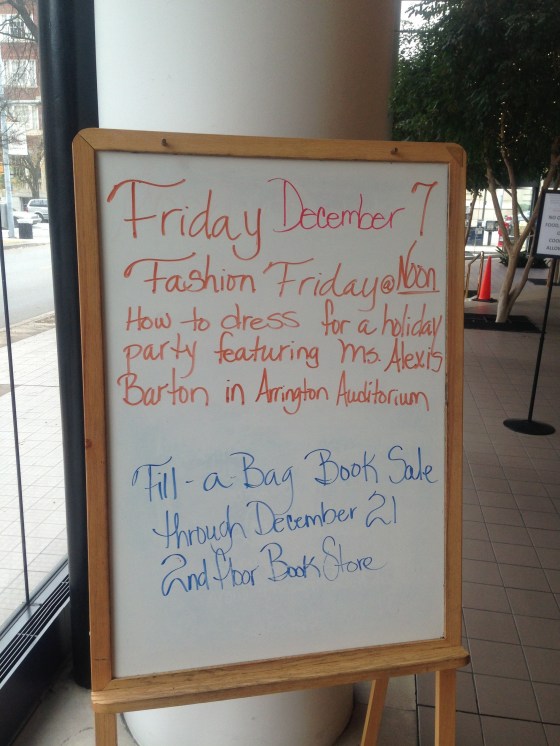 Friday December 7
Fashion Friday @ Noon
How to dress for a holiday
party featuring Ms. Alexis
Barton in Arrington Auditorium
Fill-a-Bag Book Sale
through December 21
2nd floor Book Store